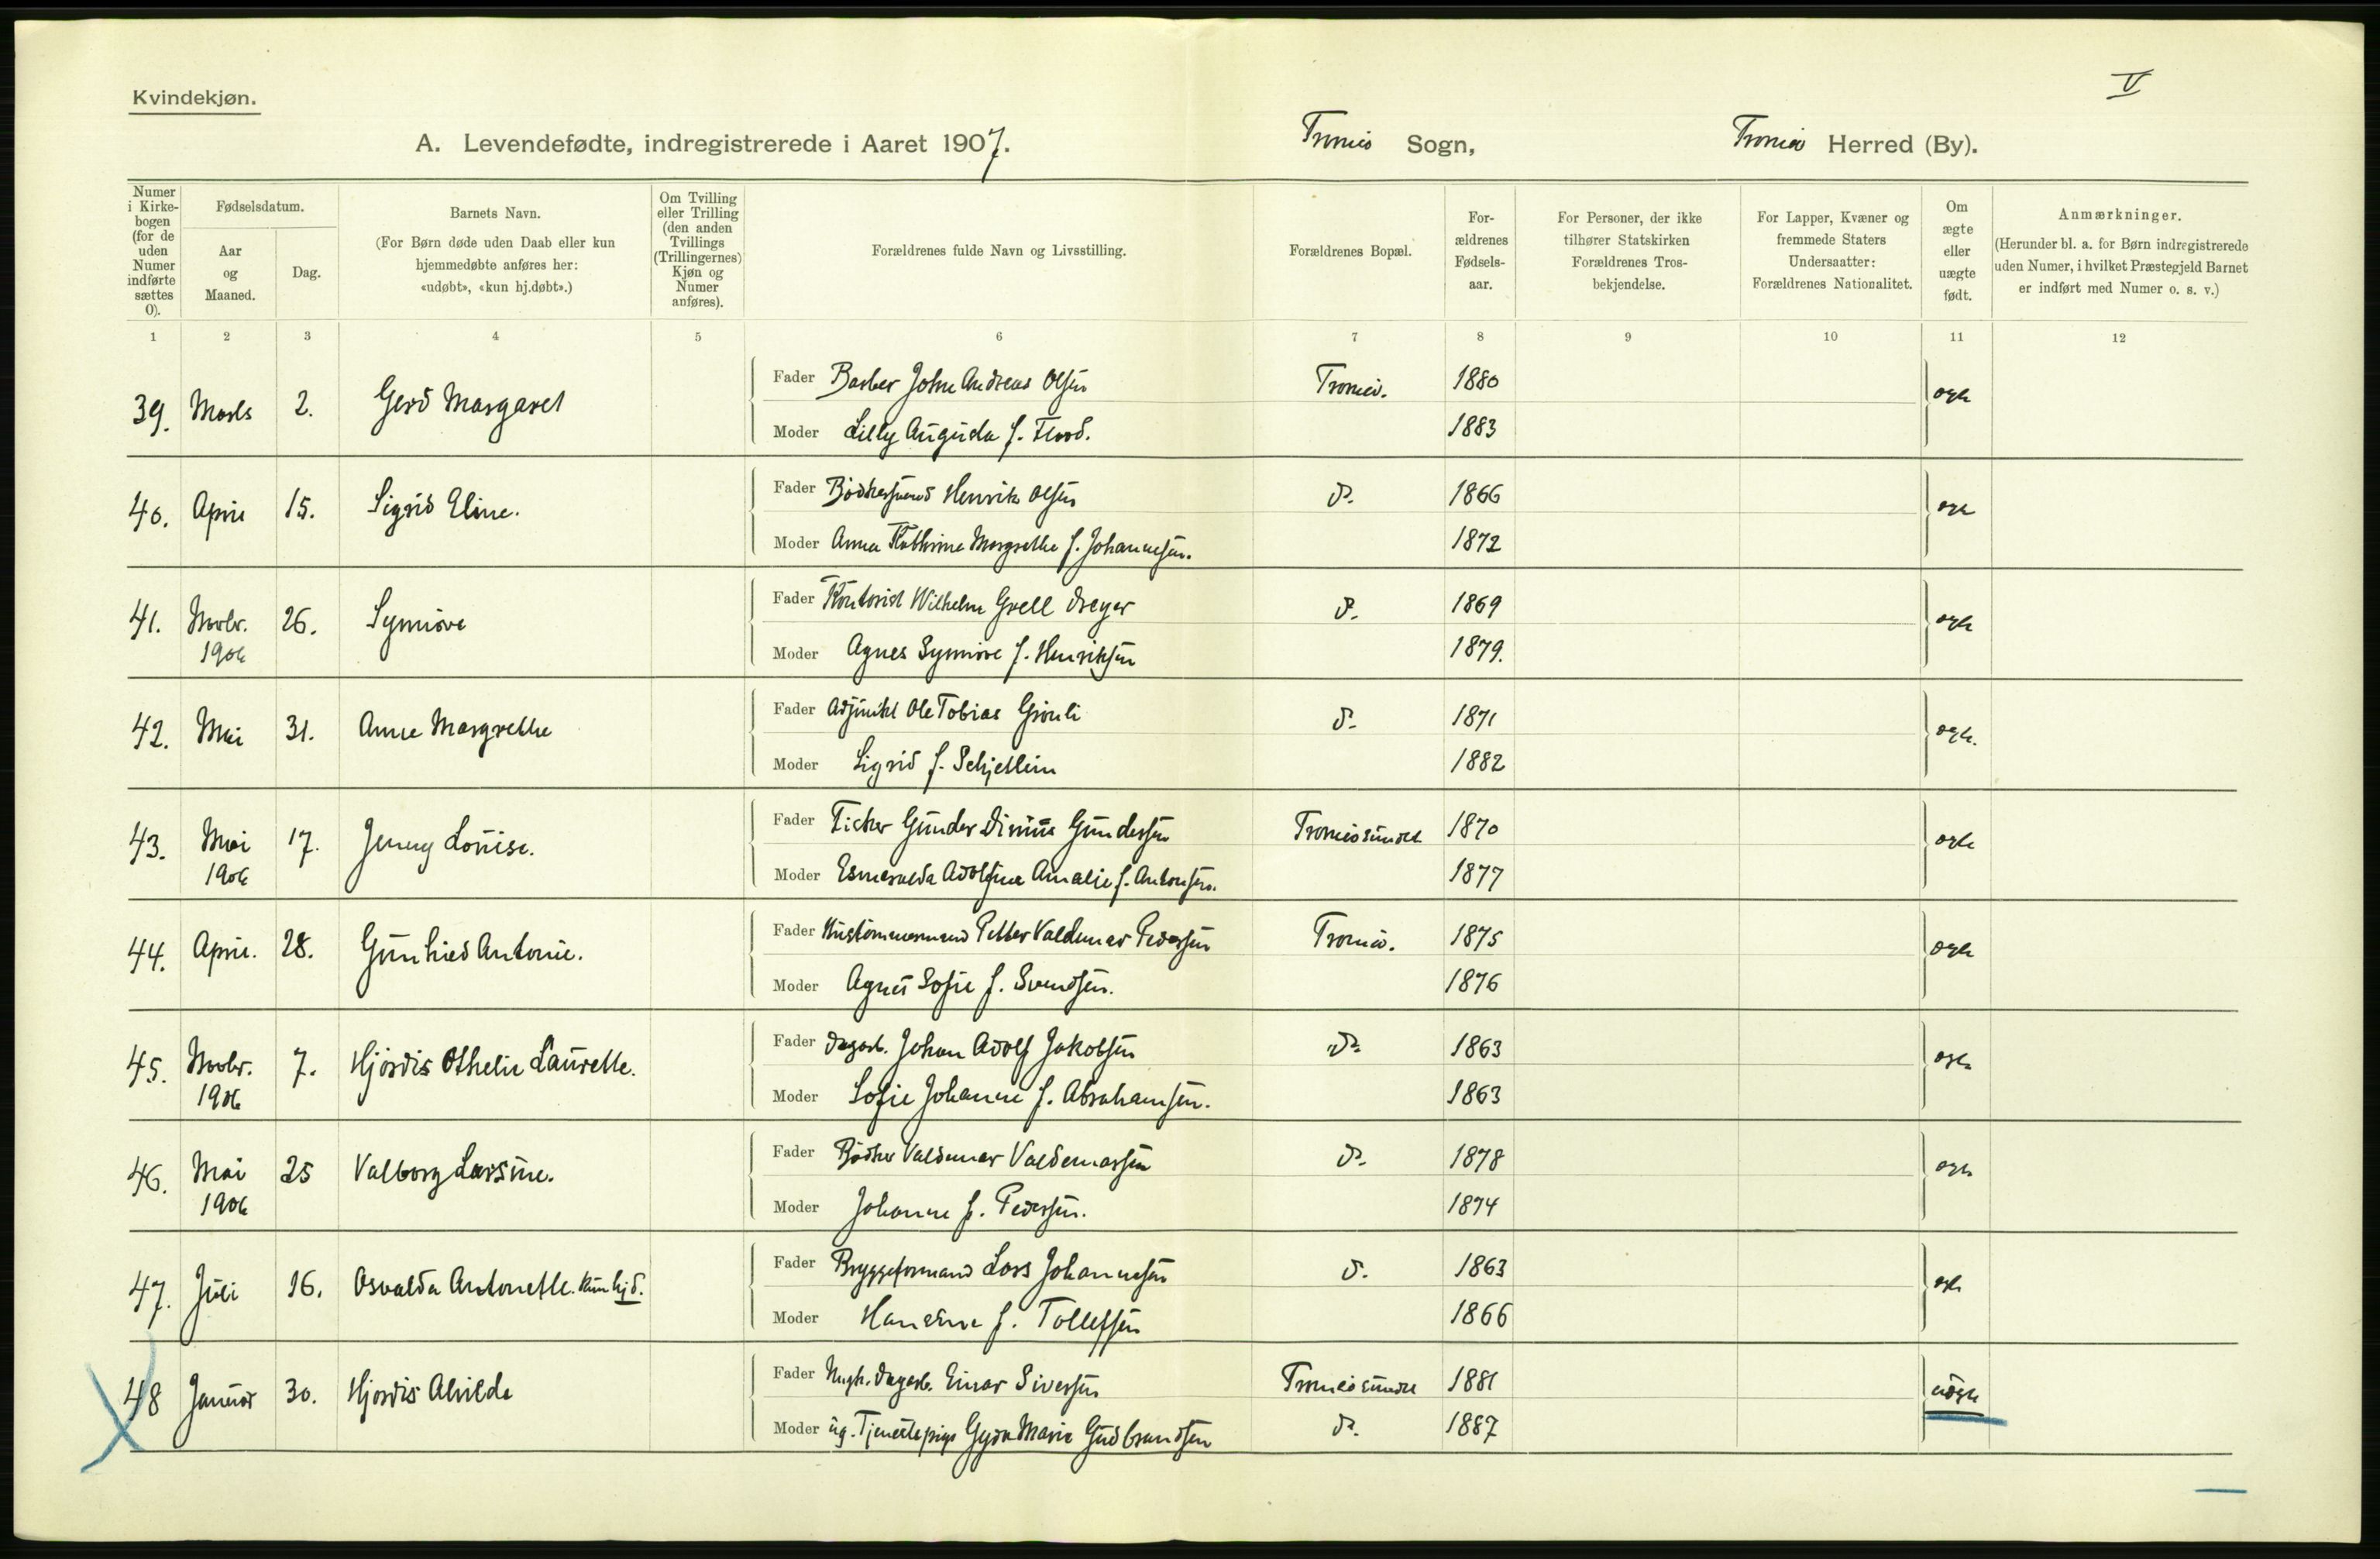 V
Kvindekjøn.
A. Levendefødte, indregistrerede i Aaret 1907. Tromsø Sogn, Tromsø Herred (By).
Numer i Kirke-bogen (for de uden Numer indførte sættes 0).
Fødselsdatum.
Aar og Maaned.
Dag.
Barnets Navn.
(For Børn døde uden Daab eller kun hjemmedøbte anføres her: «udøbt», «kun hj.døbt».)
Om Tvilling eller Trilling (den anden Tvillings (Trillingernes) Kjøn og Numer anføres).
Forældrenes fulde Navn og Livsstilling.
Forældrenes Bopæl.
For-ældrenes Fødsels-aar.
For Personer, der ikke tilhører Statskirken Forældrenes Tros-bekjendelse.
For Lapper, Kvæner og fremmede Staters Undersaatter: Forældrenes Nationalitet.
Om ægte eller uægte født.
Anmærkninger.
(Herunder bl. a. for Børn indregistrerede uden Numer, i hvilket Præstegjeld Barnet er indført med Numer o. s. v.)
1 2 3 4 5 6 7 8 9 10 11 12
39. Marts 2. Gerd Margaret Fader Barber John Andreas Olsen Tromsø. 1880 ægte
Moder Lilly Augusta f. Flood. 1883
40. April 15. Sigrid Eline. Fader Bødkersvend Henrik Olsen d. 1866 ægte
Moder Anna Kathrine Margrethe f. Johannesen. 1872
41. Novbr. 1906 26. Synnøve Fader Kontorist Wilhelm Grell Dreyer d. 1869 ægte
Moder Agnes Synnøve f. Henriksen 1879.
42. Mai 31. Anne Margrethe Fader Adjunkt Ole Tobias Grønli d. 1871 ægte.
Moder Sigrid f. Schjelbein 1882
43. Mai 1906 17. Jenny Louise. Fader Fisker Gunder Dinius Gundersen Tromsøsundet 1870 ægte
Moder Esmeralda Adolfine Amalie f. Antonsen. 1877
44. April. 28. Gunhild Antonie. Fader Hustømmermand Petter Valdemar Pedersen Tromsø. 1875 ægte
Moder Agnes Sofie f. Svendsen. 1876
45. Novbr. 1906 7. Hjørdis Othelie Laurette. Fader Dagarb. Johan Adolf Jakobsen d. 1863 ægte
Moder Sofie Johanne f. Abrahamsen. 1863
46. Mai 1906 25 Valborg Larsine. Fader Bødker Valdemar Valdemarsen d. 1878 ægte
Moder Johanne f. Pedersen. 1874
47. Juli 16. Osvalda Antonette. kun hjd. Fader Bryggeformand Lars Johannesen d. 1863 ægte
Moder Hansine f. Tollefsen 1866
48 Januar 30. Hjørdis Alvilda Fader Ungk. Dagarb. Einar Sivertsen Tromsøsundet 1881 uægte
Moder ug. Tjenestepige Gyda Marie Gudbrandsen d. 1887